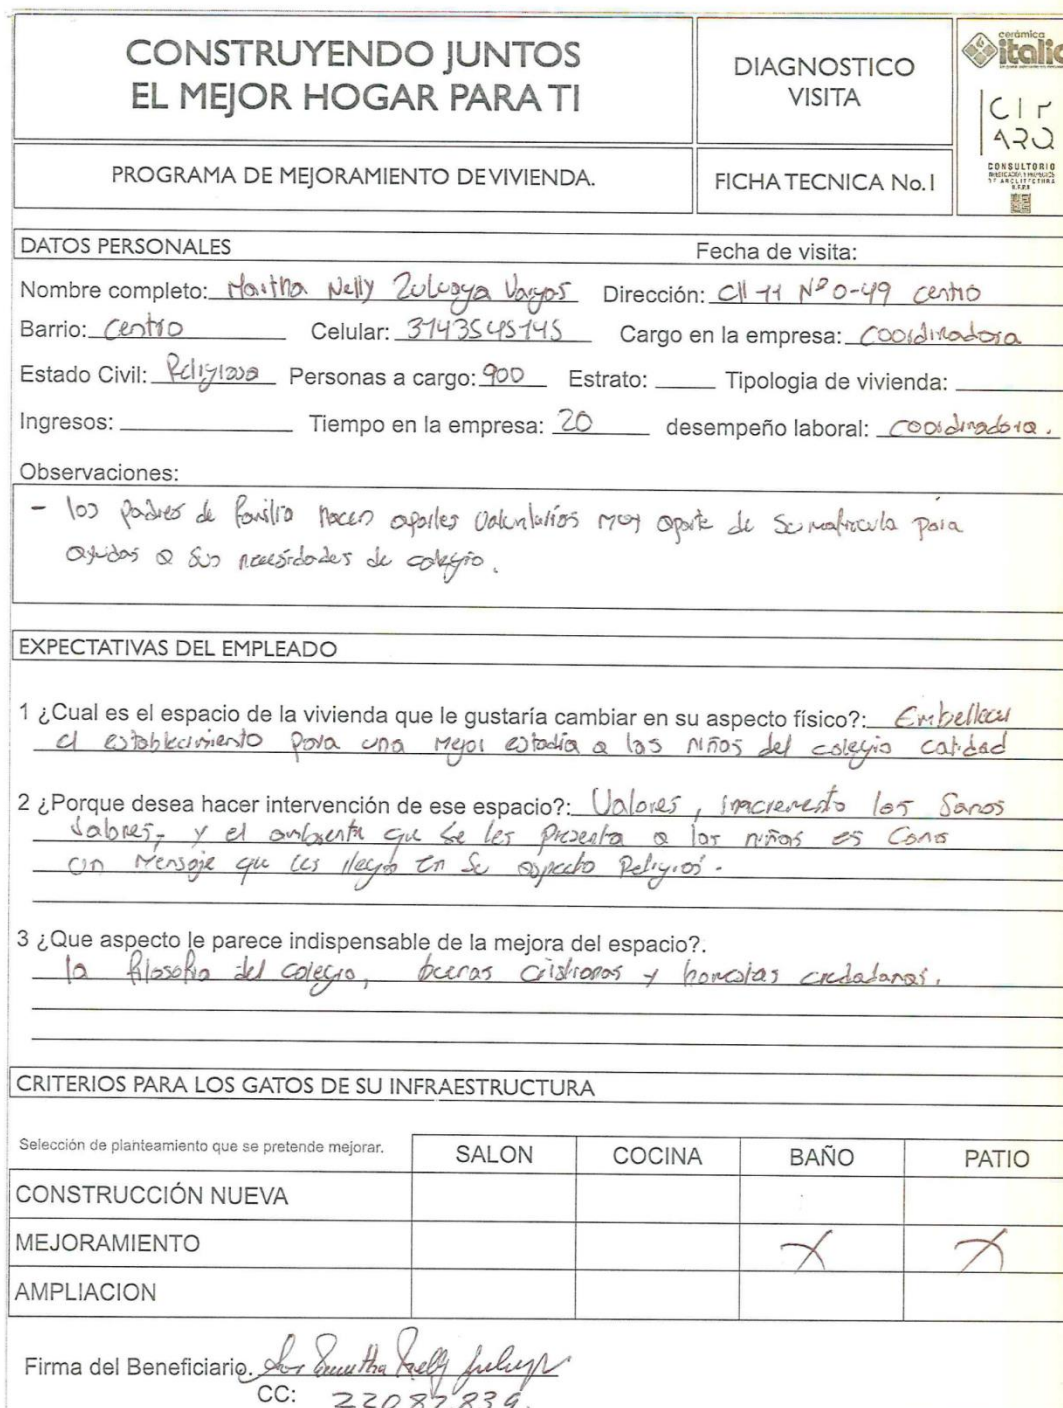 CONSTRUYENDO JUNTOS
EL MEJOR HOGAR PARA TI
DIAGNOSTICO
VISITA
cerámica
italia
CIP
ARQ
CONSULTORIO
PROGRAMA DE MEJORAMIENTO DE VIVIENDA.
FICHA TECNICA No.1
DATOS PERSONALES Fecha de visita:
Nombre completo: Martha Nelly Zuluaga Vargas Dirección: Cll 11 Nº 0-49 centro
Barrio: Centro Celular: 3143545145 Cargo en la empresa: Coordinadora
Estado Civil: Religiosa Personas a cargo: 900 Estrato: Tipologia de vivienda:
Ingresos: Tiempo en la empresa: 20 desempeño laboral: coordinadora.
Observaciones:
- los padres de familia hacen aportes voluntarios muy aparte de su matricula para
ayudas a sus necesidades de colegio.
EXPECTATIVAS DEL EMPLEADO
1 ¿Cual es el espacio de la vivienda que le gustaría cambiar en su aspecto físico?: Embellecer
el establecimiento para una mejor estadía a las niñas del colegio calidad
2 ¿Porque desea hacer intervención de ese espacio?: Valores, incremento los Sanos
y el ambiente que se les presenta a las niñas es Como
un mensaje que les llega en su aspecto Religios.
3 ¿Que aspecto le parece indispensable de la mejora del espacio?.
la filosofia del colegio, buenas cristianas y honestas ciudadanas.
CRITERIOS PARA LOS GATOS DE SU INFRAESTRUCTURA
Selección de planteamiento que se pretende mejorar. SALON COCINA BAÑO PATIO
CONSTRUCCIÓN NUEVA
MEJORAMIENTO X X
AMPLIACION
Firma del Beneficiario. Sor Martha Nelly Zuluaga
CC: 22082.839.